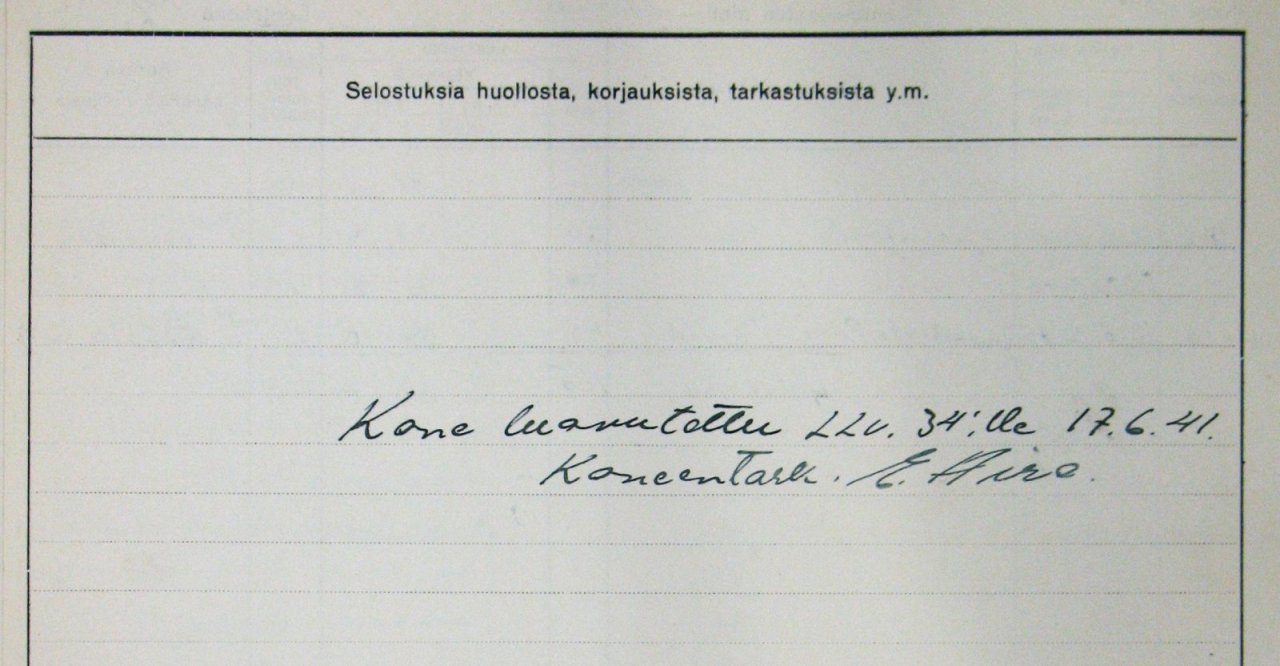 Selostuksia huollosta, korjauksista, tarkastuksista y.m.
Kone luovutettu LLv. 34:lle 17.6.41.
Koneentark. E.